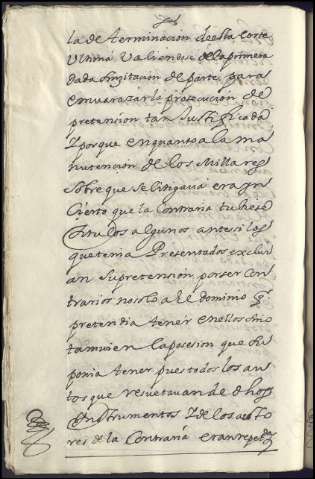 la de terminacion de esta corte
Ultima Valiendose de la primera
dada sin zitacion de parte para
envarazar la prosecucion de
pretension tan Justificada
Y porque en quanto a la ma
nutencion de los Millares
Sobre que se litigava era yn
Cierto que la Contraria tubiese
titulos algunos antes i los
que tenia Presentados exclui
an su pretension por ser con
trarios no solo a el dominio q
pretendia tener en ellos sino
tamvien la posesion que su
ponia tener pues todos los au
tos que resultavan de dhos
Ynstrumentos Y de los
res de la Contraria eran